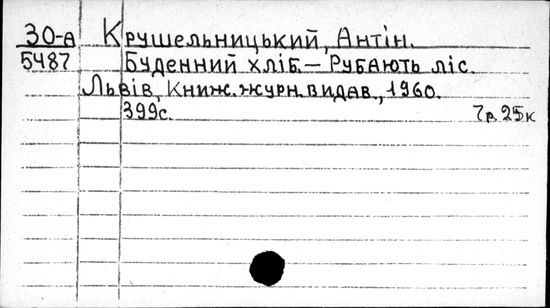 30-А Крушельницький, Антін.
5487 Буденний хліб. — Рубають ліс.
Львів, Книж. журн. видав., 1960.
399с. 7р. 25к